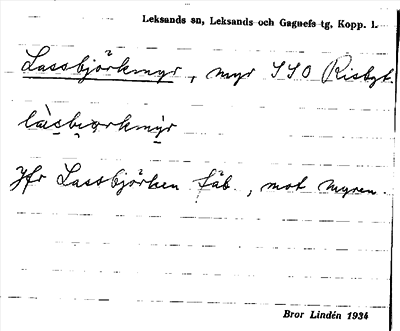 Leksands sn, Leksands och Gagnefs tg, Kopp. l.
Lassbjörkmyr, myr SSO Risbyt.
làsbiọrkmỳr
Jfr Lassbjörken fäb., mot myren.
Bror Lindén 1934